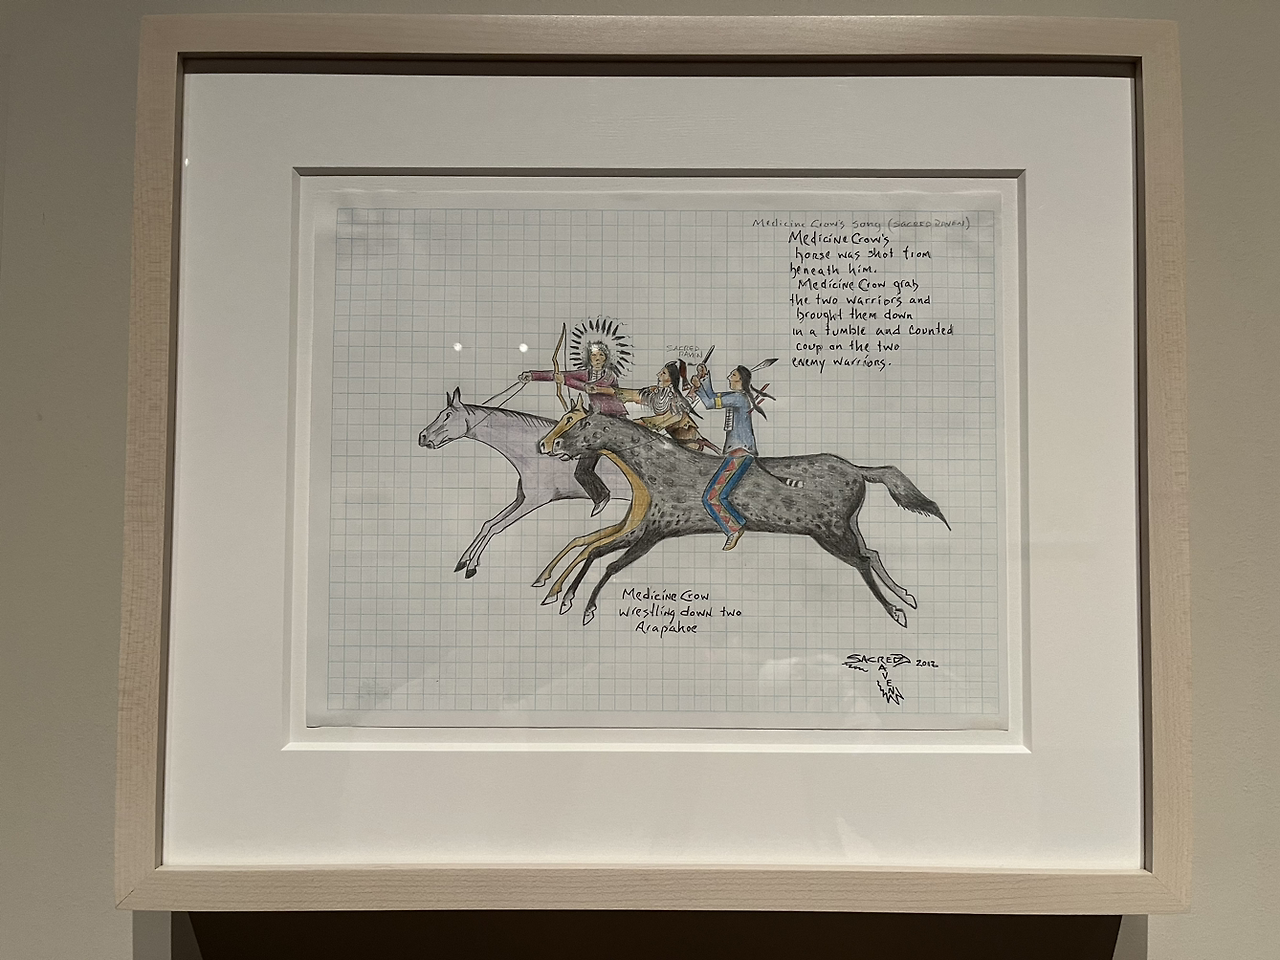 Medicine Crow's Song (SACRED RAVEN)
Medicine Crow's
horse was shot from
beneath him.
Medicine Crow grab
the two warriors and
brought them down
in a tumble and counted
coup on the two
enemy warriors.
SACRED
RAVEN
Medicine Crow
wrestling down two
Arapahoe
SACRED 2012
RAVEN